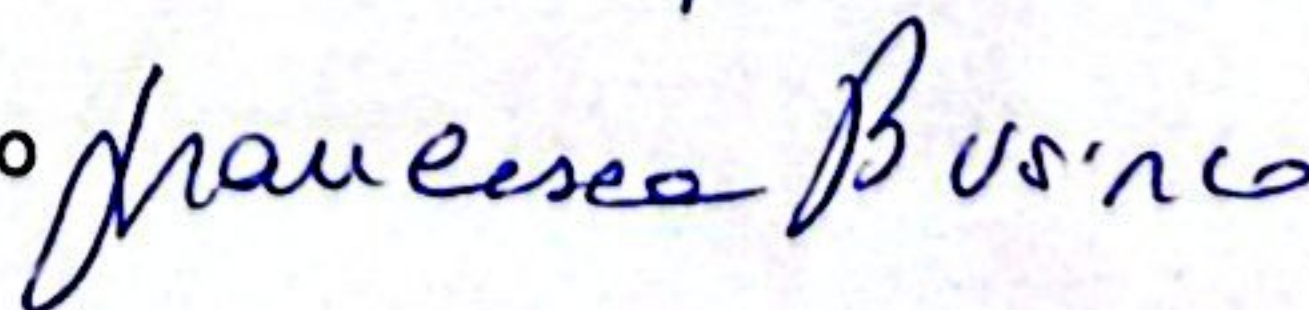 o Francesca Businco